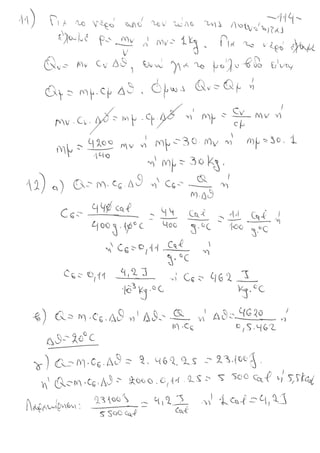 -114-
11) Για το νερό από τον τύπο της πυκνότητας
έχουμε ρ= mν ή mν=1kg. Για το νερό έχουμε
Qν= mν cν Δθ, ενώ για το μόλυβδο είναι
Qμ= mμ.cμ Δθ. Όμως Qν=Qμ ή
mν.cν.Δθ=mμ.cμ.Δθ ή mμ= cν/cμ mν ή
mμ= 4200/140 mν ή mμ=30.mν ή mμ=30.1
ή mμ=30kg.
12) α) Q=m.c6 Δθ ή c6= Q/m.Δθ ή
c6= 440 cal/400g.10°C = 44/400 cal/g.°C = 11/100 cal/g.°C ή
ή c6=0,11 cal/g.°C ή
c6=0,11 4,2J/10³kg.°C ή c6=462 J/kg.°C
β) Q=m.c6.Δθ ή Δθ= Q/m.c6 ή Δθ= 4620/0,5.462 ή
Δθ=20°C
γ) Q=m.c6.Δθ = 2.462.25 = 23.100J.
ή Q=m.c6.Δθ = 2000.0,11.25 = 5500cal ή 5,5kcal
Παρατήρηση: 23100J/5500cal = 4,2 J/cal ή 1cal=4,2J